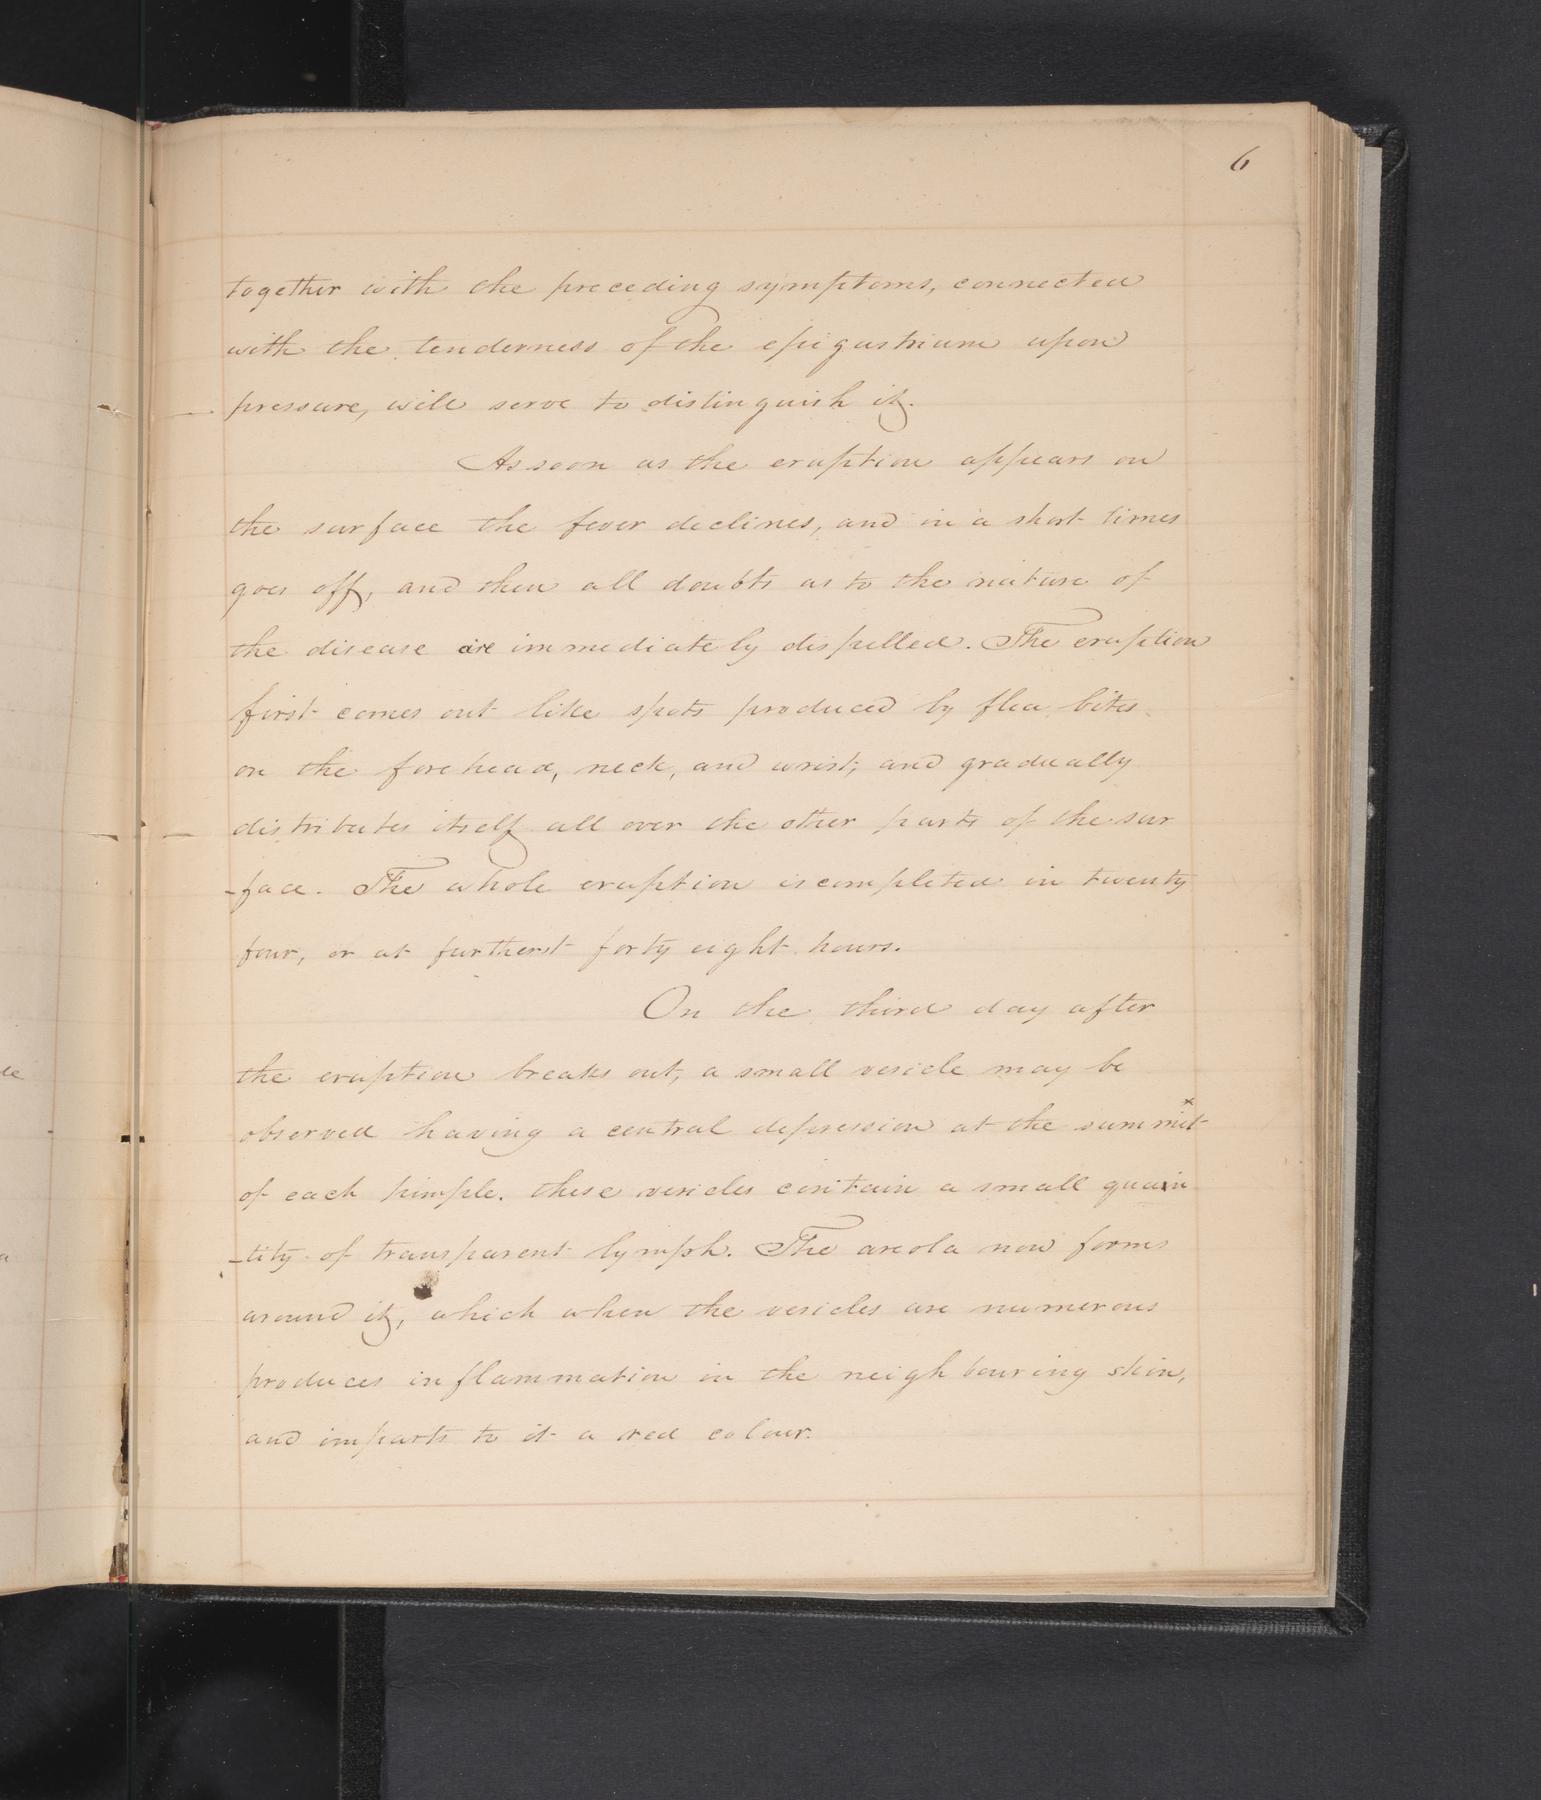 6
together with the preceding symptoms, connected
with the tenderness of the epigastrium upon
pressure, will serve to distinguish it.
As soon as the eruption appears on
the surface the fever declines, and in a short times
goes off, and then all doubts as to the nature of
the disease are immediately dispelled. The eruption
first comes out like spots produced by flea bites
on the forehead, neck, and wrist; and gradually
distributes itself all over the other parts of the sur
-face. The whole eruption is completed in twenty
four, or at furtherst forty eight hours.
On the third day after
the eruption breaks out, a small vesicle may be
observed having a central depression at the summit
of each pimple. these vesicles contain a small quain
-tity of transparent lymph. The areola now forms
around it, which when the vesicles are numerous
produces inflammation in the neighbouring skin,
and imparts to it a red colour.